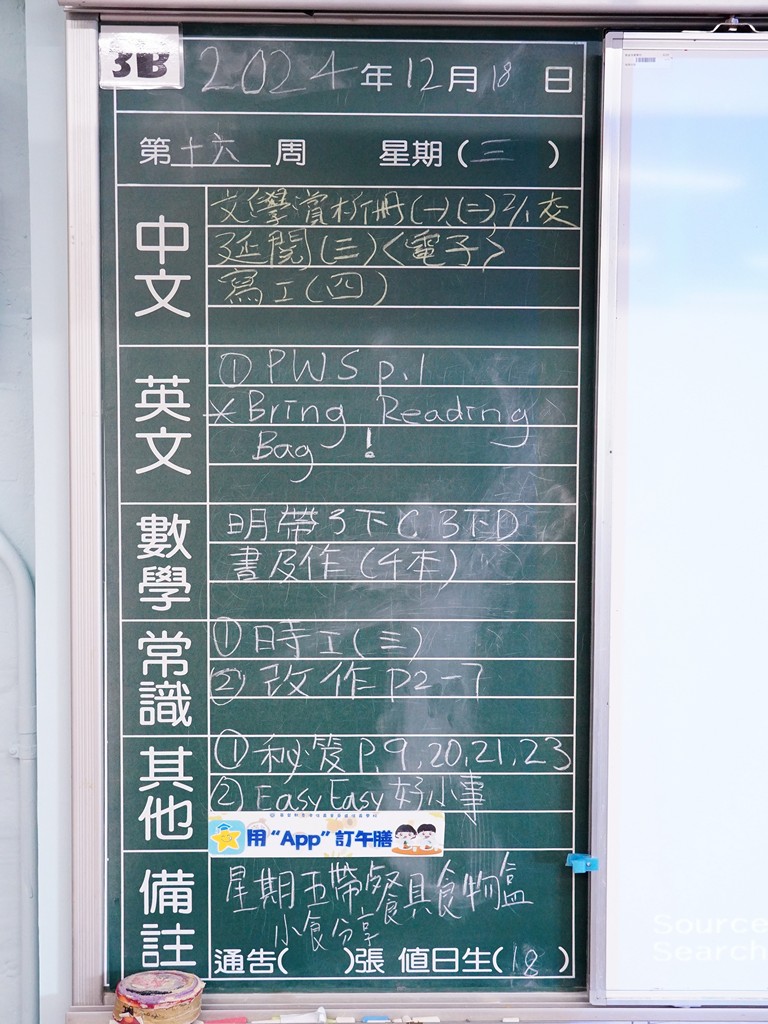 3B
2024年12月18日
第十六周 星期(三)
中文
文學賞析冊(一)(二)2/1交
延閱(三)<電子>
寫工(四)
英文
① PWS p.1
* Bring Reading
Bag !
數學
明帶3下C 3下D
書及作(4本)
常識
①時工(三)
②改作P2-7
其他
①秘笈P.9,20,21,23
②EasyEasy好小事
用“App”訂午膳
備註
星期五帶餐具食物盒
小食分享
通告( )張 值日生(18)
Source
Search